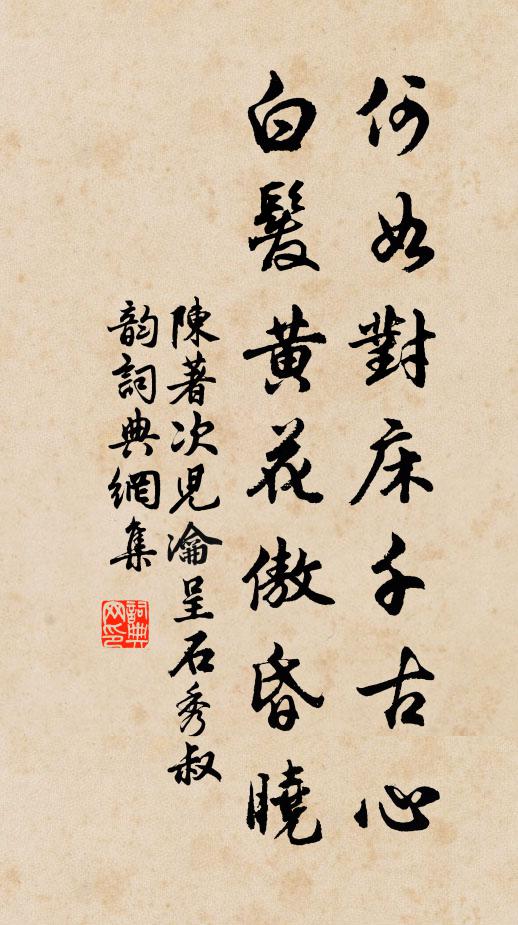 何如對床千古心
白髮黄花傲昏曉
陳著次兒瀹呈石秀叔
韵詞典網集
詞典网印